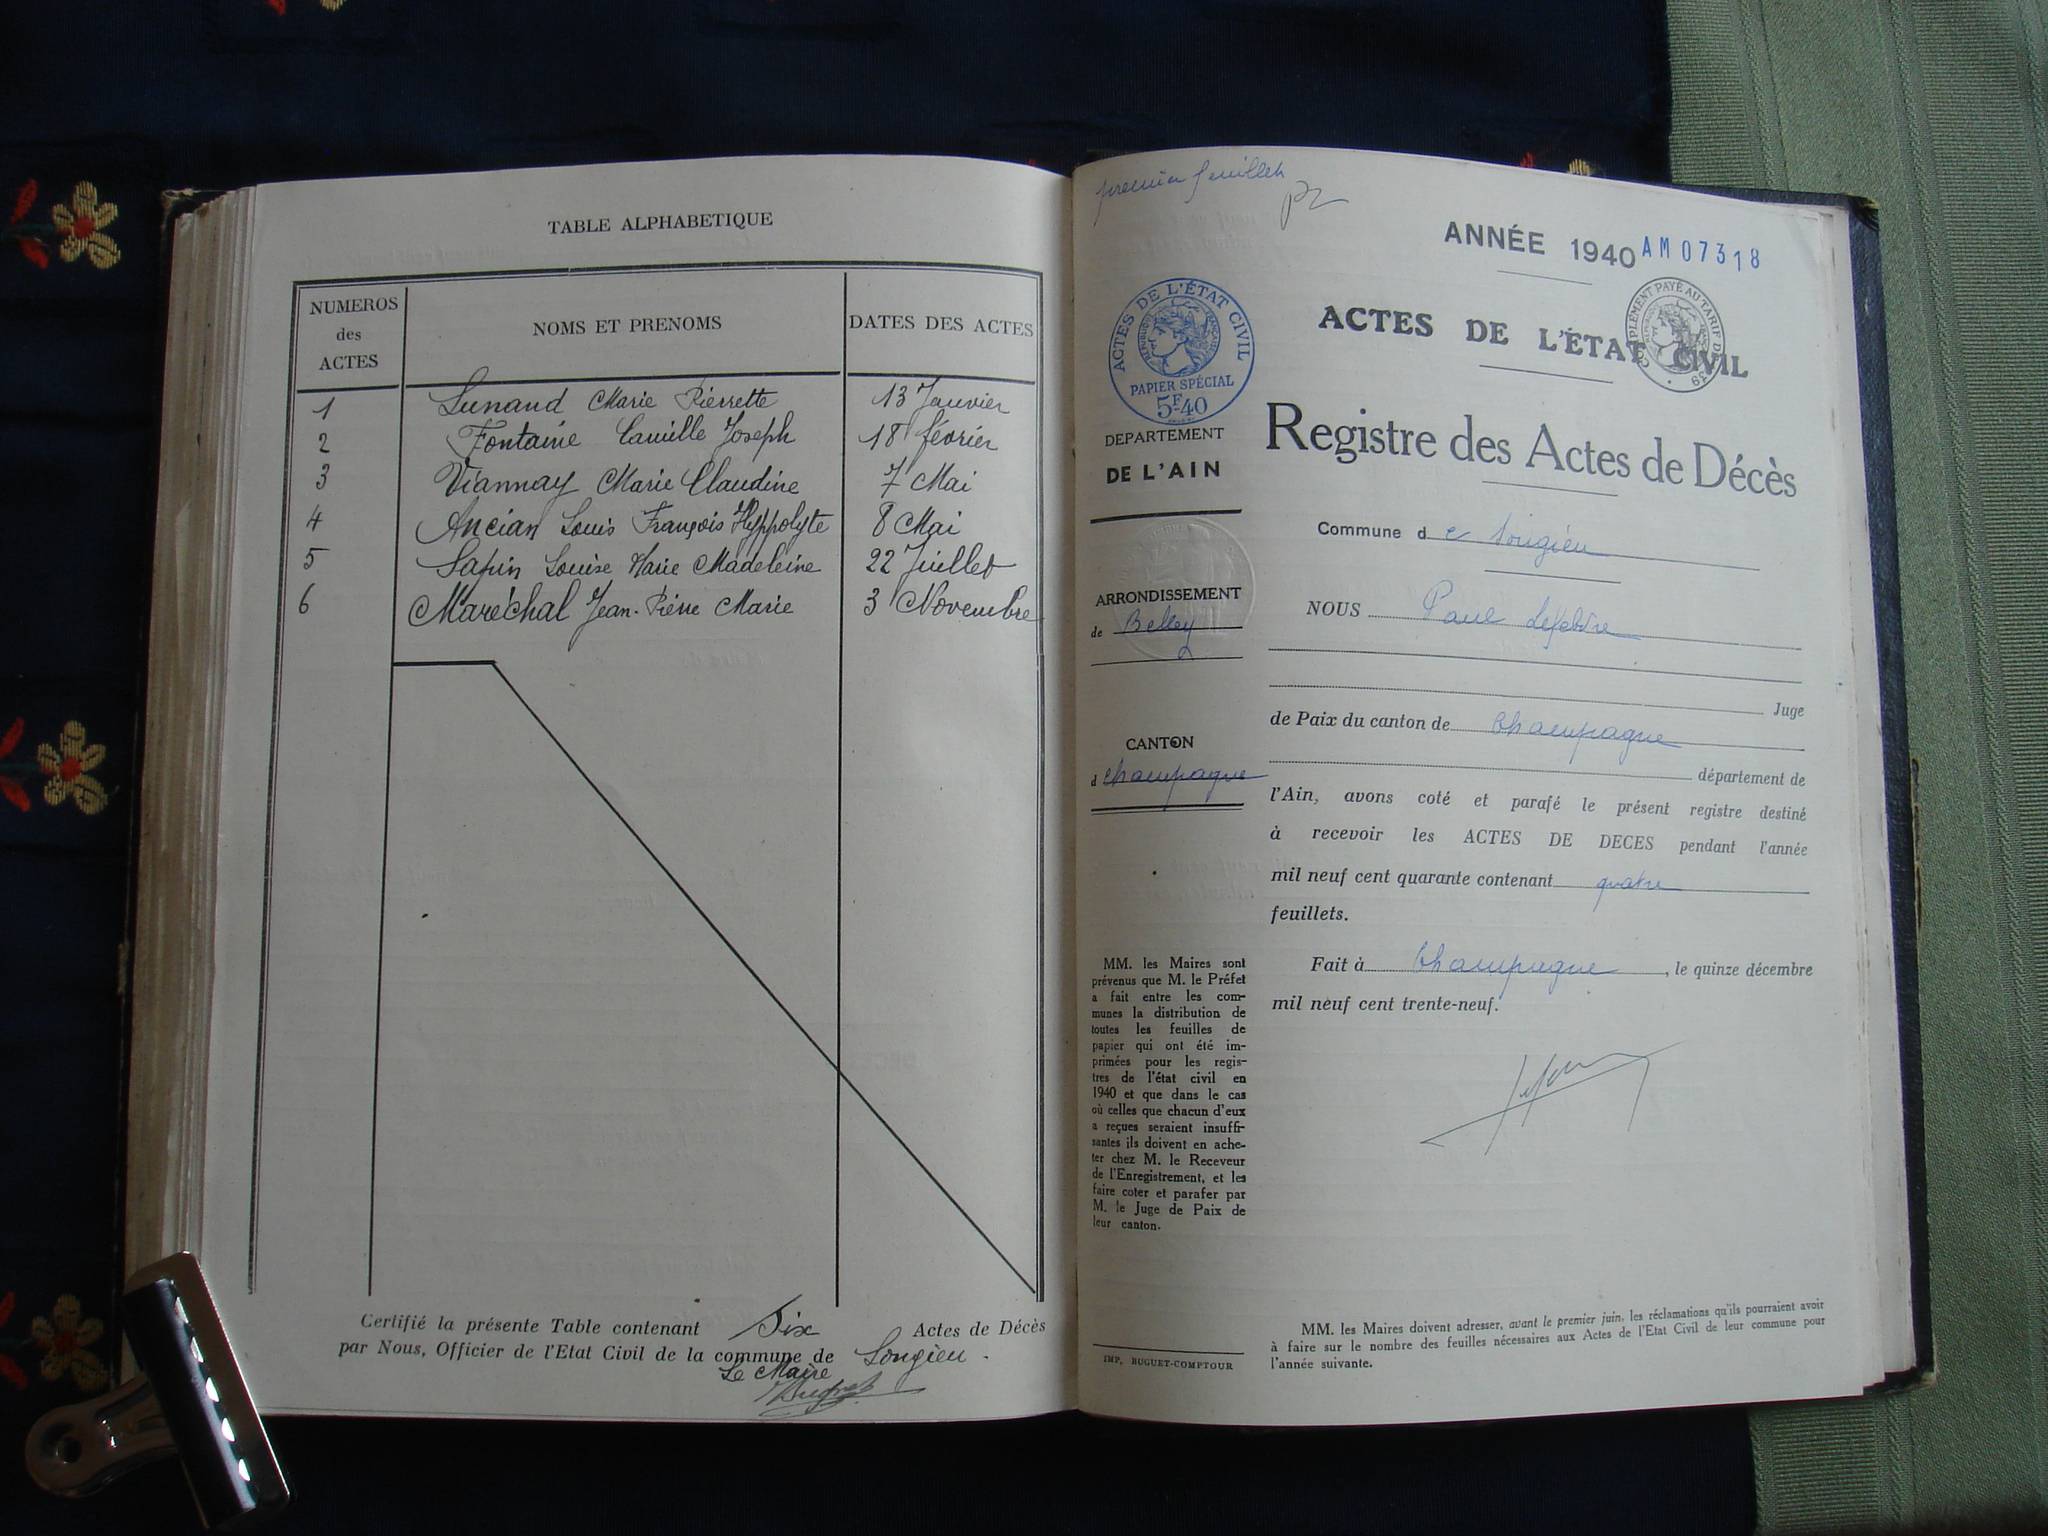 TABLE ALPHABETIQUE
NUMEROS des ACTES NOMS ET PRENOMS DATES DES ACTES
1 Lunaud Marie Pierrette 13 Janvier
2 Fontaine Camille Joseph 18 février
3 Viannay Marie Claudine 7 Mai
4 Ancian Louis François Hyppolyte 8 Mai
5 Sapin Louise Marie Madeleine 22 Juillet
6 Maréchal Jean-Pierre Marie 3 Novembre
Certifié la présente Table contenant Six Actes de Décès
par Nous, Officier de l'Etat Civil de la commune de Songieu.
Le Maire
premier feuillet
ANNÉE 1940 AM07318
ACTES DE L'ÉTAT CIVIL
PAPIER SPÉCIAL
5F.40
ACTES DE L'ÉTAT CIVIL
Registre des Actes de Décès
DEPARTEMENT
DE L'AIN
ARRONDISSEMENT
de Belley
CANTON
d Champagne
Commune de Songieu
NOUS Paul Lefebvre
Juge
de Paix du canton de Champagne
département de
l'Ain, avons coté et parafé le présent registre destiné
à recevoir les ACTES DE DECES pendant l'année
mil neuf cent quarante contenant quatre
feuillets.
Fait à Champagne, le quinze décembre
mil neuf cent trente-neuf.
MM. les Maires sont
prévenus que M. le Préfet
a fait entre les com-
munes la distribution de
toutes les feuilles de
papier qui ont été im-
primées pour les regis-
tres de l'état civil en
1940 et que dans le cas
où celles que chacun d'eux
a reçues seraient insuffi-
santes ils doivent en ache-
ter chez M. le Receveur
de l'Enregistrement, et les
faire coter et parafer par
M. le Juge de Paix de
leur canton.
IMP, BUGUET-COMPTOUR
MM. les Maires doivent adresser, avant le premier juin, les réclamations qu'ils pourraient avoir
à faire sur le nombre des feuilles nécessaires aux Actes de l'Etat Civil de leur commune pour
l'année suivante.